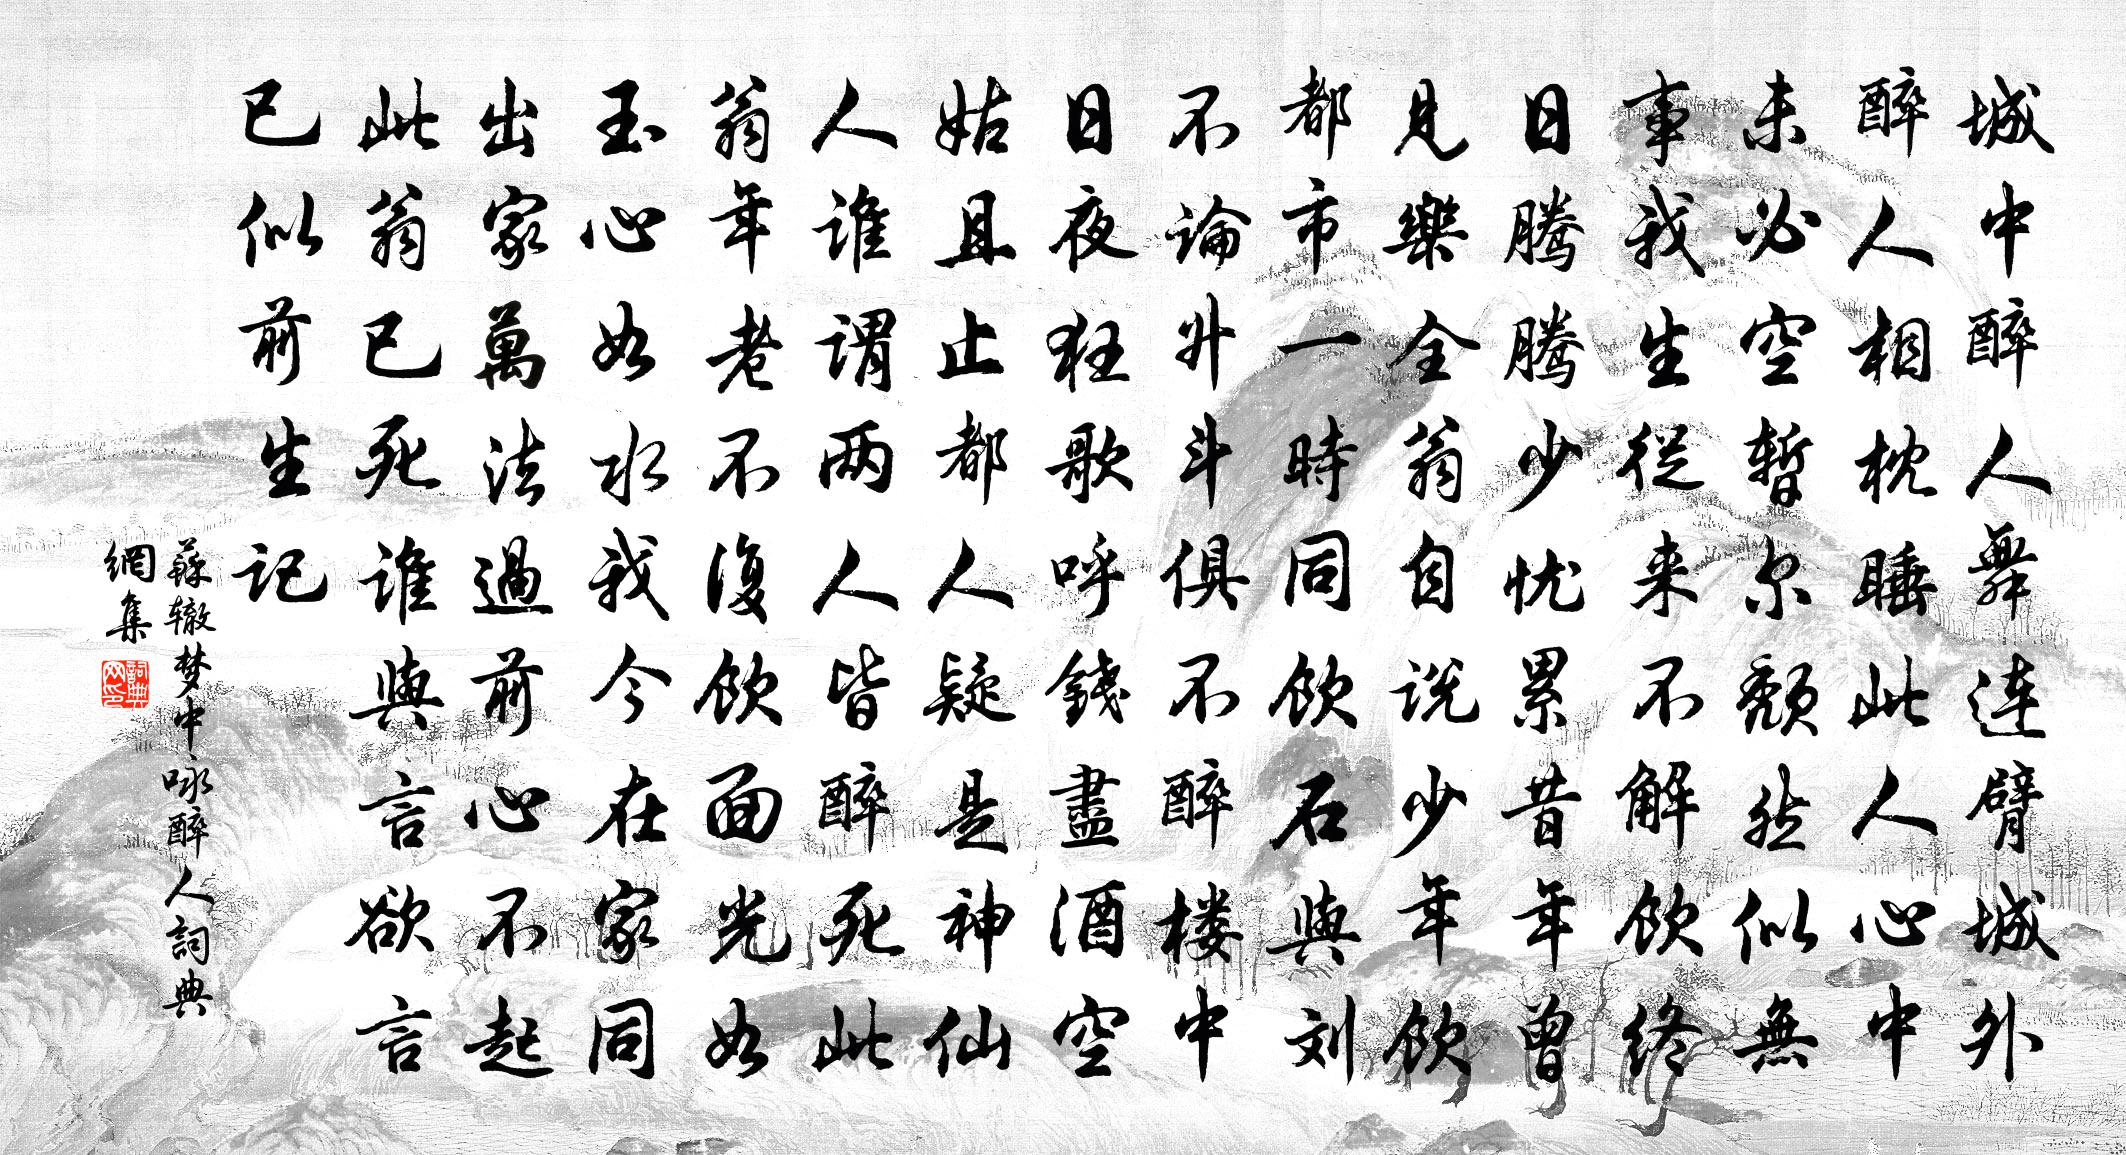 城中醉人舞連臂城外
醉人相枕睡此人心中
未必空暫尔頹然似無
事我生從来不解飲終
日騰騰少忧累昔年曾
見樂全翁自说少年飲
都市一時同飲石與刘
不論升斗俱不醉楼中
日夜狂歌呼錢盡酒空
姑且止都人疑是神仙
人誰謂两人皆醉死此
翁年老不復飲面光如
玉心如水我今在家同
出家萬法過前心不起
此翁已死誰與言欲言
已似前生記
蘇辙梦中咏醉人詞典
網集
詞典网印